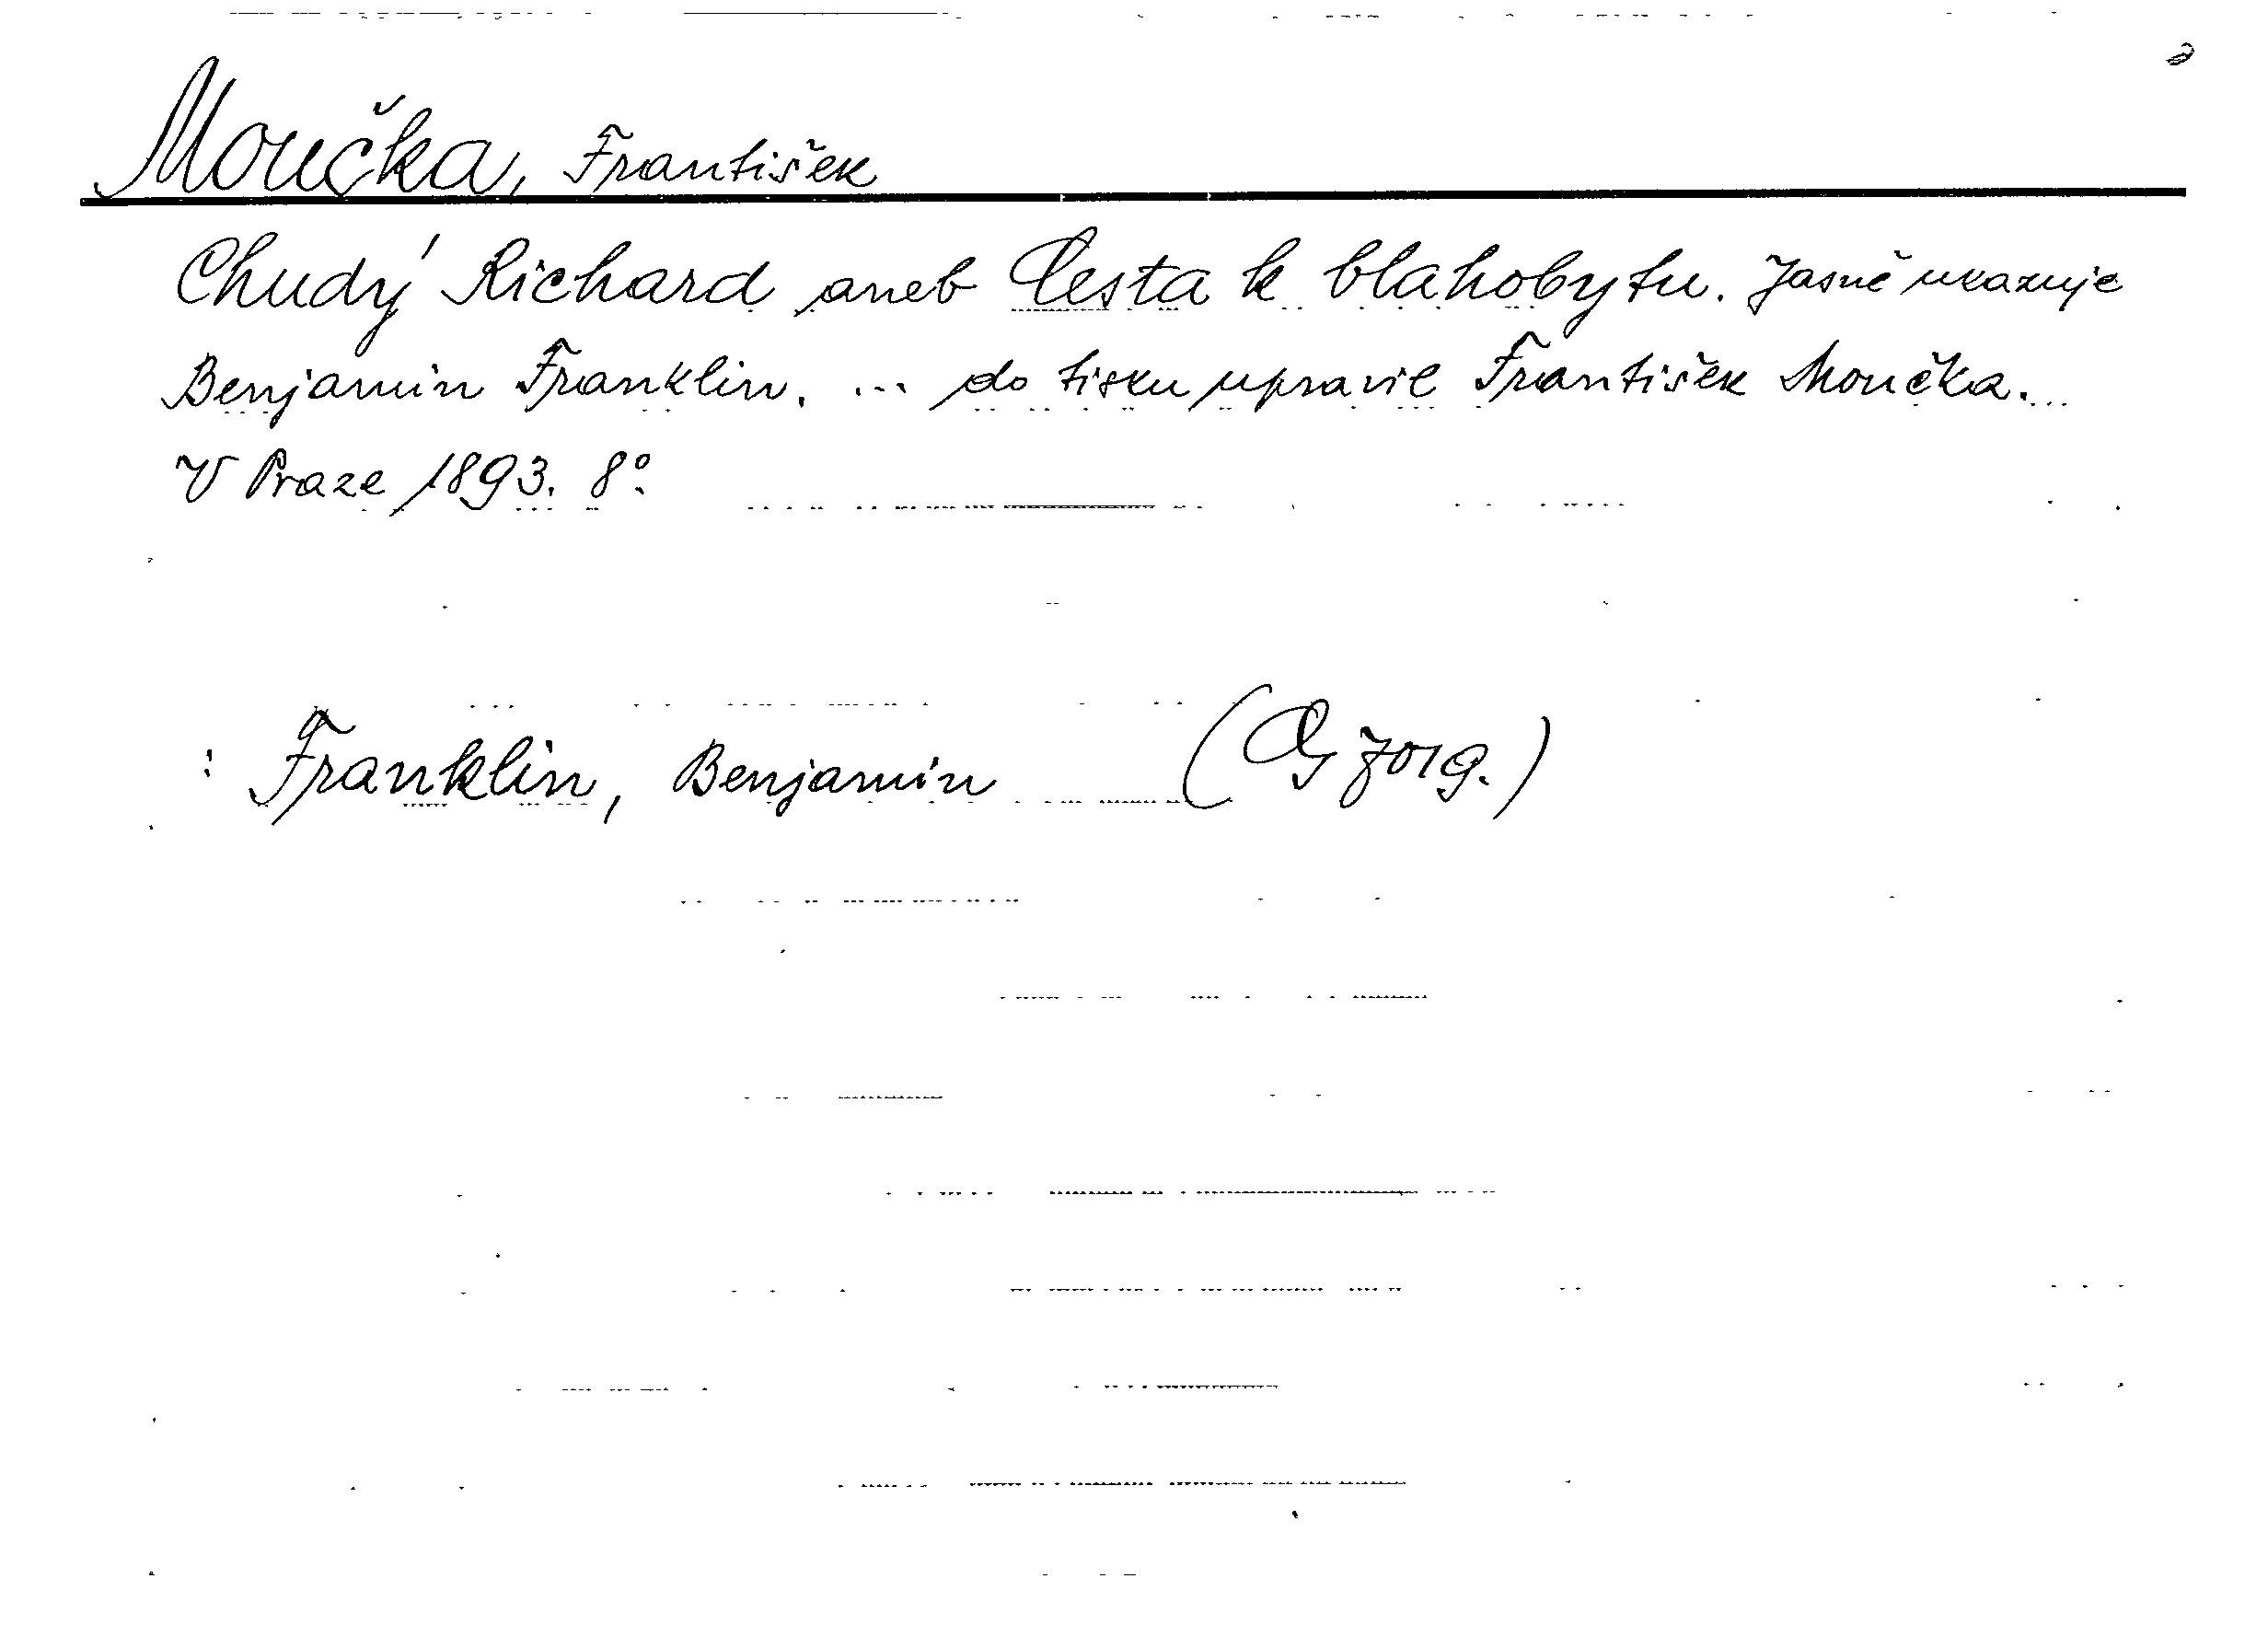 Moučka, František
Chudý Richard aneb Cesta k blahobytu. Jasně ukazuje
Benjamin Franklin. ... do tisku upravil František Moučka.
V Praze 1893. 8°.
: Franklin, Benjamin